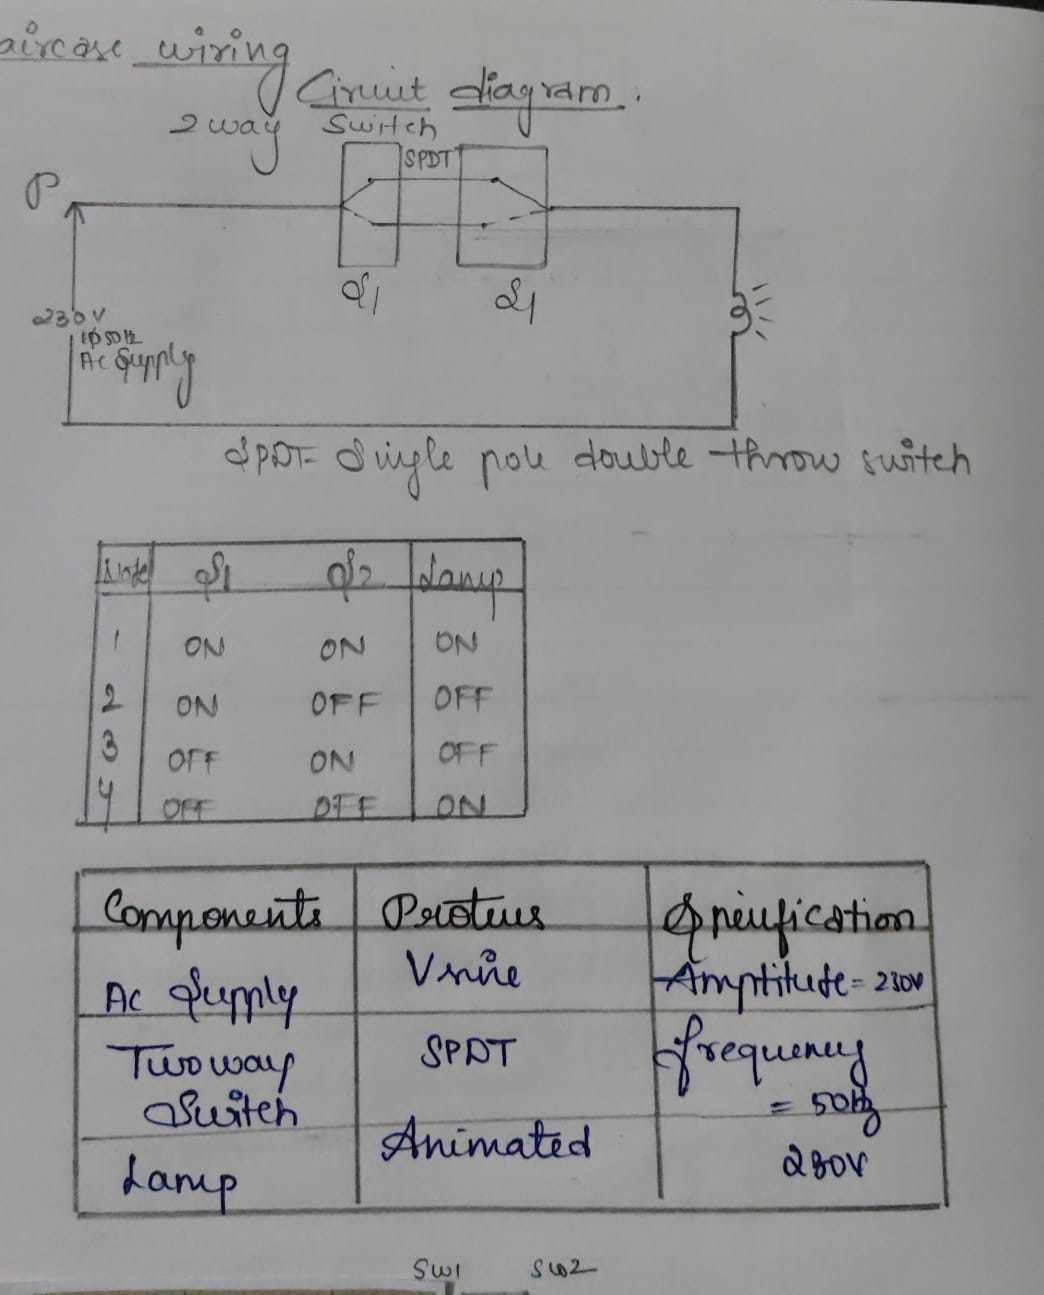 aircase wiring
Circuit diagram.
2 way Switch
SPDT
P
S1 S1
230V
1ϕ 50Hz
Ac Supply
SPDT= Single pole double throw switch
S1 S2 Lamp
1 ON ON ON
2 ON OFF OFF
3 OFF ON OFF
4 OFF OFF ON
Components Proteus Specification
AC Supply Vsine Amptitude = 230V
Two way SPDT frequency
Switch = 50Hz
Lamp Animated 230V
SW1 SW2